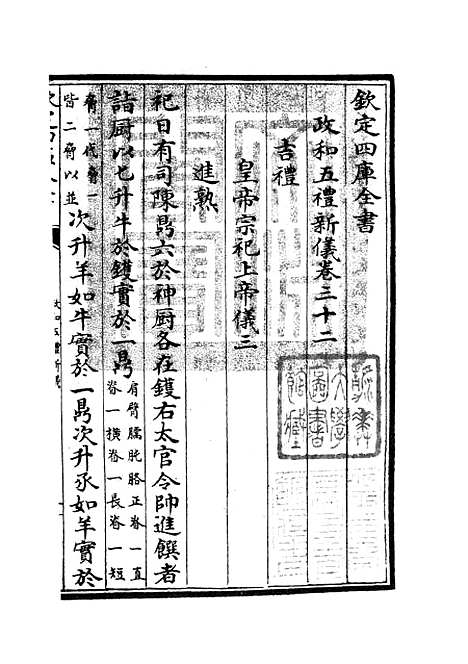 欽定四庫全書
政和五禮新儀卷三十二
吉禮
皇帝宗祀上帝儀三
進熟
祀日有司陳鼎六於神厨各在鑊右太官令帥進饌者
詣厨以匕升牛於鑊實於一鼎肩臂臑肫胳正脊一直脊一橫脊一長脅一短
脅一代脅一皆二骨以並次升羊如牛實於一鼎次升豕如羊實於
政和五禮新儀
大學圖書館藏